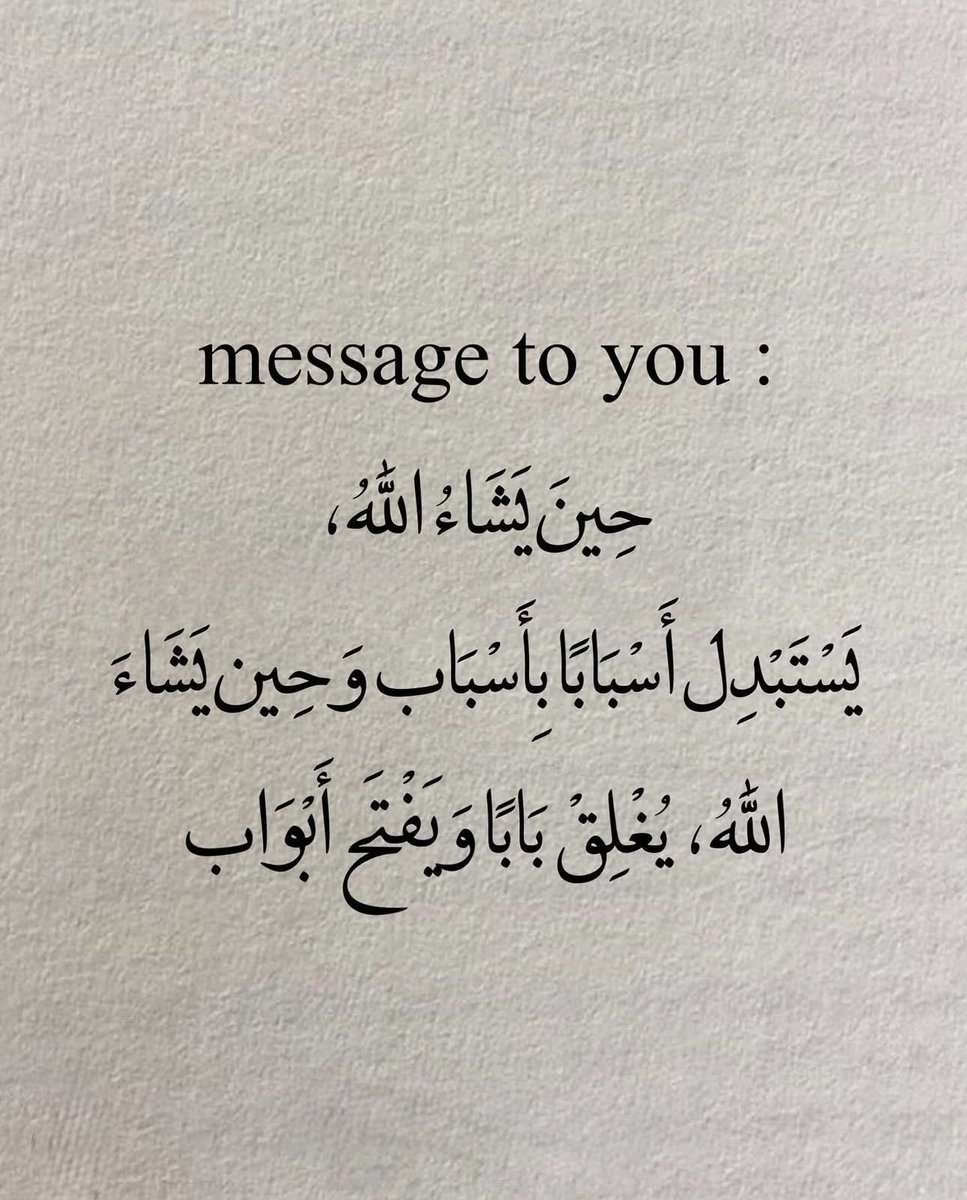 message to you :
حِينَ يَشَاءُ اللّٰهُ،
يَسْتَبْدِل أَسْبَابًا بِأَسْبَاب وَ حِين يَشَاءَ
اللّٰهُ، يُغْلِقْ بَابًا وَيَفْتَح أَبْوَاب